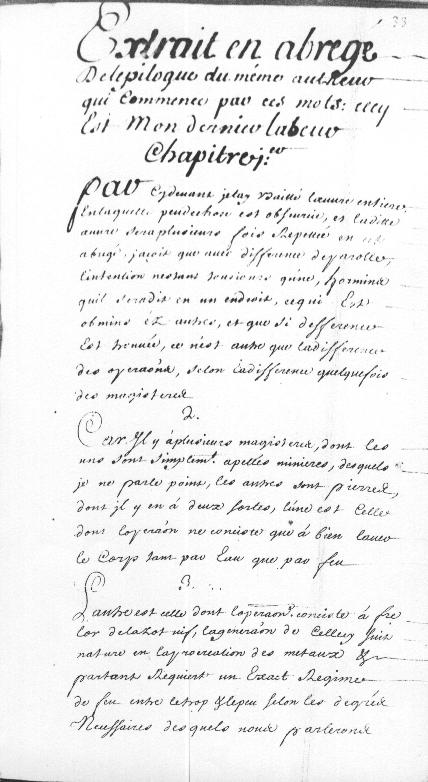 33
Extrait en abrege
De lepilogue du même autheur
qui Commence par ces mots: cecy
Est Mon dernier labeur
Chapitre j.er
Par Cydevant jelay baillé lœuvre entiere,
Enlaquelle peu de chose est obscurcie, et ladite
œuvre sera plusieurs fois Repetée en cet
abregé, jacoit que avec difference de parolle
lintention nestant tousiours qune, hormine
quil seradit en un endroit, ce qui Est
obmins éz autres, et que si difference
Est trouuée, ce n'est autre que ladifference
des operaõns, selon ladifference quelquefois
des magisteres
2.
Car Il y a plusieurs magisteres, dont les
uns sont simplemt. apelles minieres, desquels
je ne parle point, les autres sont pierres,
dont jl y en à deux sortes, lune est Celle
dont loperaõn ne conciste que à bien lauer
le Corps tant par Eau que par feu
3.
Lautre est celle dont loperaõn. conciste à
lor delazot vif, lageneraõn de Cellecy suit
nature en laprocreation des metaux &
partant Requiert un Exact Regime
de feu entre letrop & lepeu selon les degrés
Necessaires desquels nous parlerons